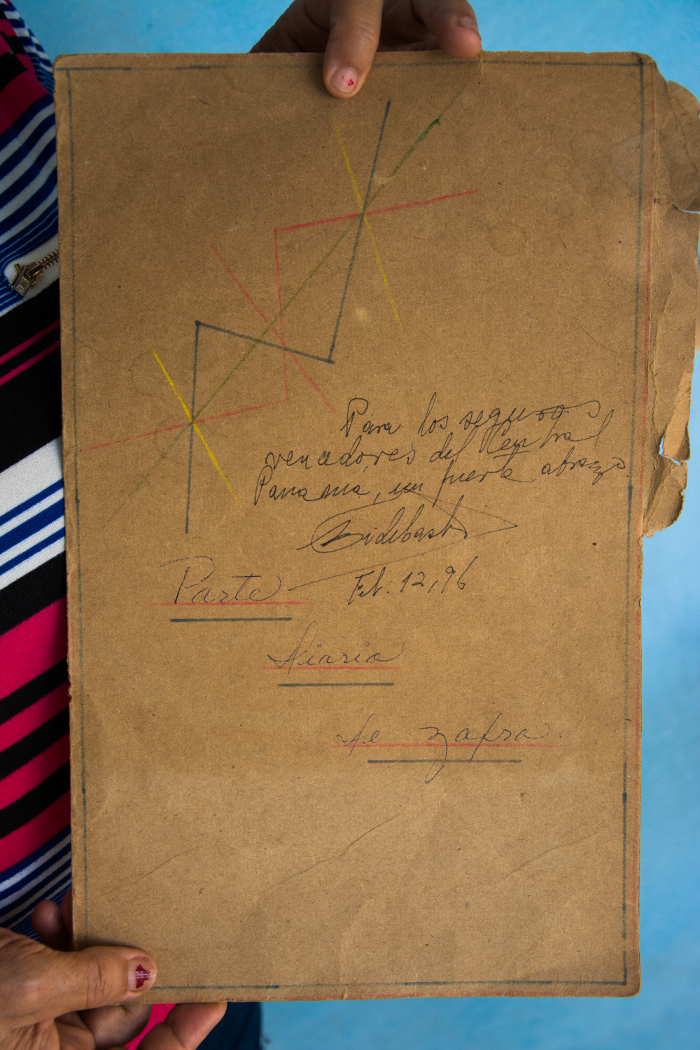 Para los seguros
vencadores del Central
Panama, un fuerte abrazo.
Feb. 12, 96
Parte
Diario
de zafra.